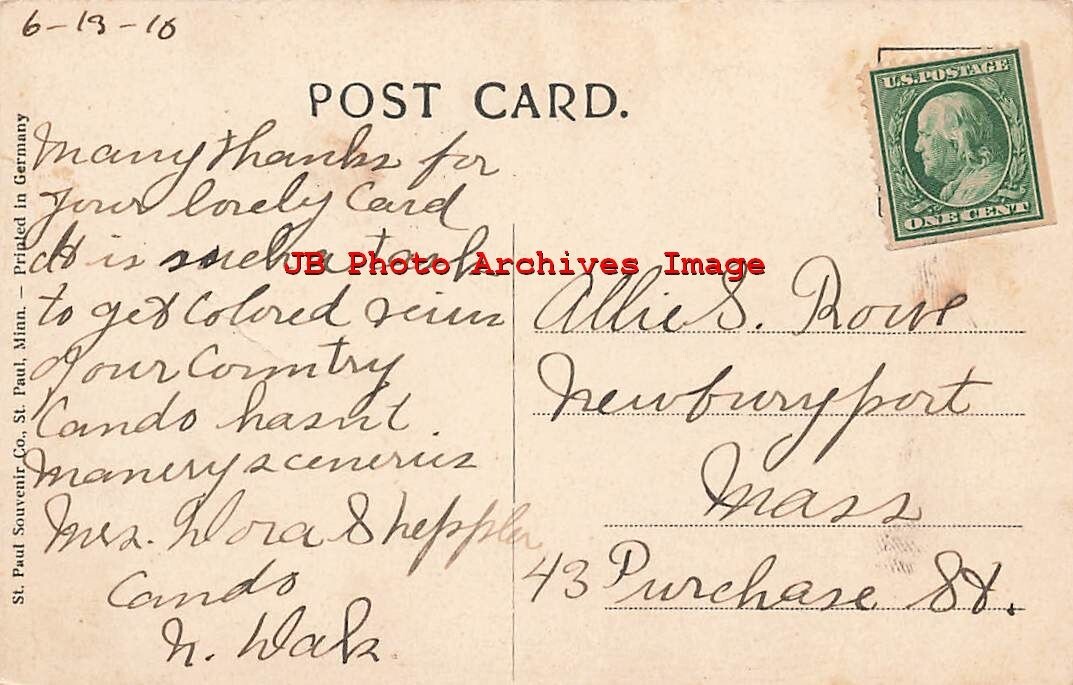 6-13-10
POST CARD.
U.S. POSTAGE
ONE CENT
St. Paul Souvenir Co., St. Paul, Minn. — Printed in Germany
Many thanks for
your lovely Card
It is such a task
to get Colored
your Country
Cando hasnt
sceneries
Mrs. Dora Sheppler
Cando
N. Dak
JB Photo Archives Image
Allie S. Rowe
Newburyport
Mass
43 Purchase St.